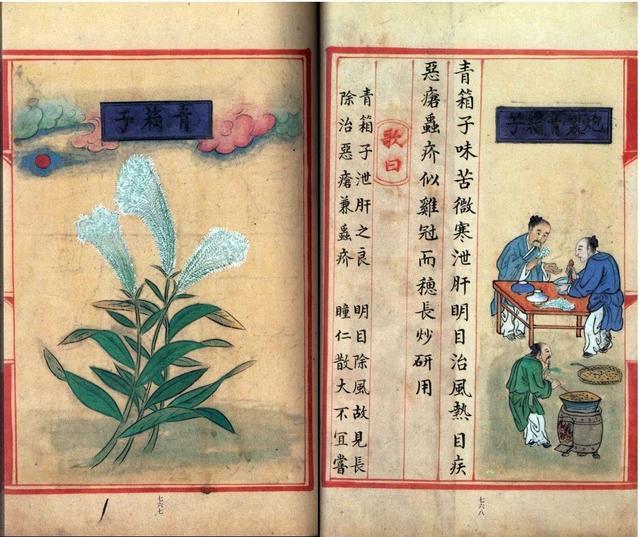 炮製青箱子
青箱子味苦微寒泄肝明目治風熱目疾
惡瘡蟲疥似雞冠而穗長炒研用
歌曰
青箱子泄肝之良 明目除風故見長
除治惡瘡兼蟲疥 瞳仁散大不宜嘗
七六八
青箱子
七六七